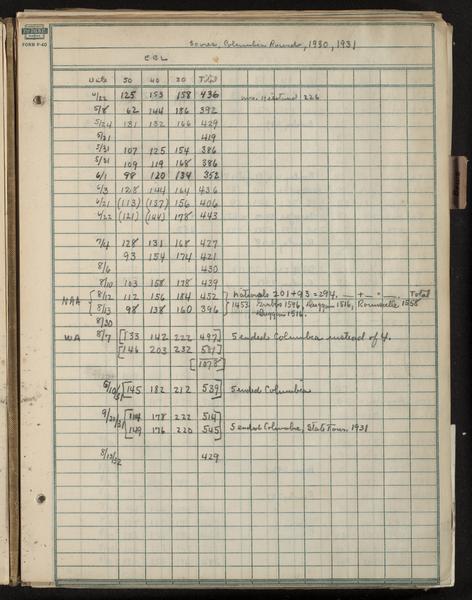 FORM P-40
Scores, Columbia Rounds, 1930, 1931
Date 50 40 30 Total
4/22 125 153 158 436
5/8 62 144 186 392
5/24 131 132 166 429
5/21 419
5/31 107 125 154 386
5/31 109 119 168 386
6/1 98 120 134 352
6/3 128 144 164 436
6/21 (113) (137) 156 406
6/22 (121) (144) 178 443
7/4 128 131 168 427
93 154 174 421
8/6 430
8/10 103 158 178 439
NAA 8/12 112 156 184 452 Nationals 201+93=294. Total
8/13 98 138 160 396 1453. 1596, Duggan 1516, Rounsville, 1558
8/30 Duggan 1516.
WA 8/7 [133 142 222 497] 5 ended Columbia instead of 4.
[146 203 232 581]
[1078]
[145 182 212 539] 5 ended Columbia
9/20/31 [114 178 222 514]
[149 176 220 545] 5 ended Columbia, State Tour. 1931
8/12/32 429